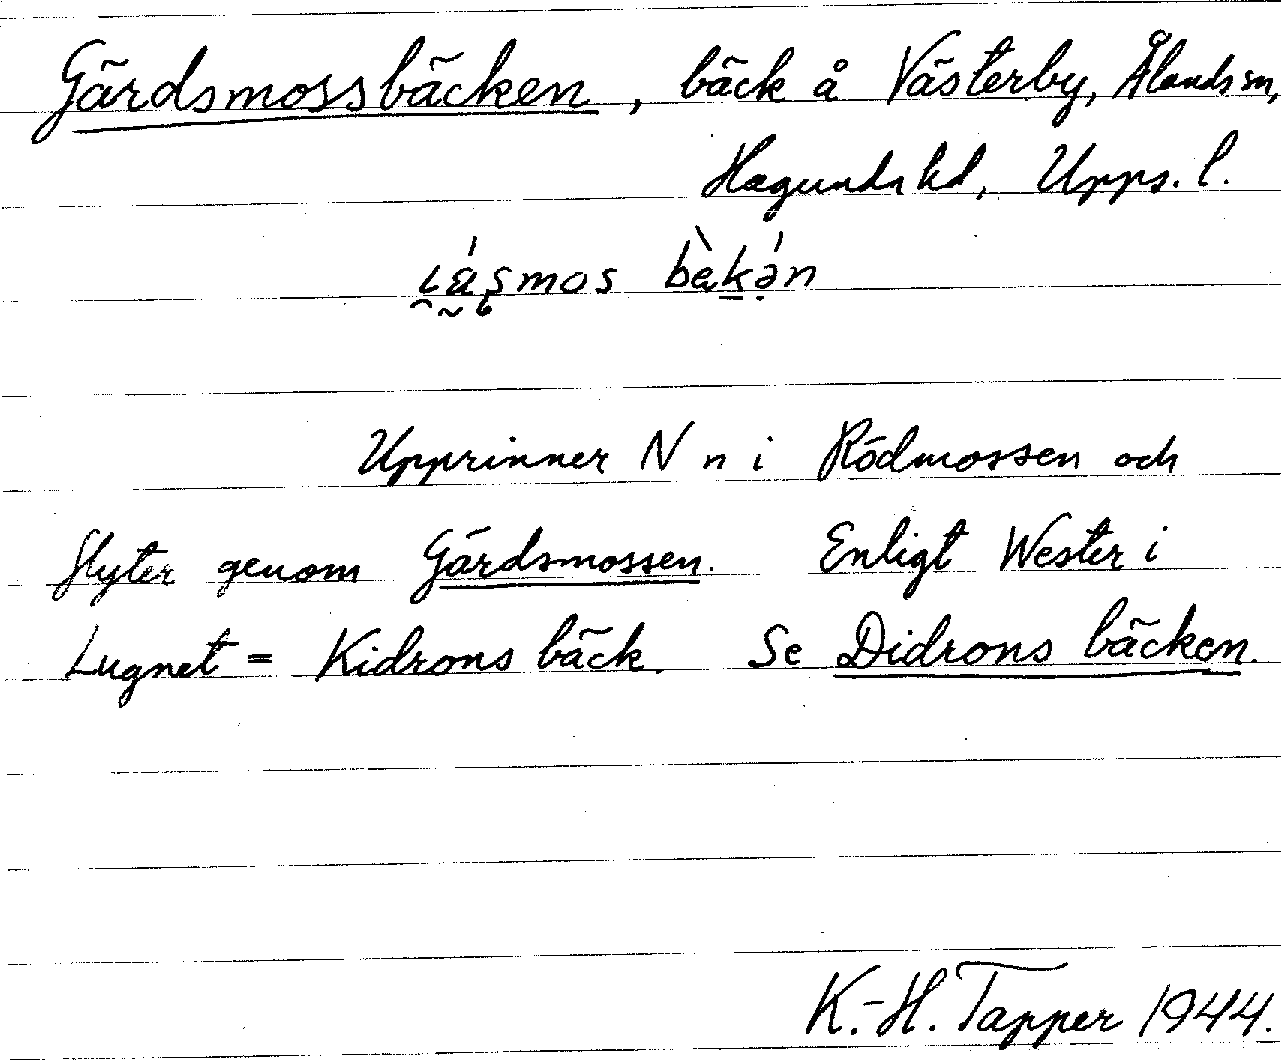 Gärdsmossbäcken, bäck å Västerby, Ålands sn,
Hagunda hd, Upps. l.
mos
Upprinner N n i Rödmossen och
flyter genom Gärdsmossen. Enligt Wester i
Lugnet = Kidrons bäck. Se Didrons bäcken.
K.-H. Tapper 1944.